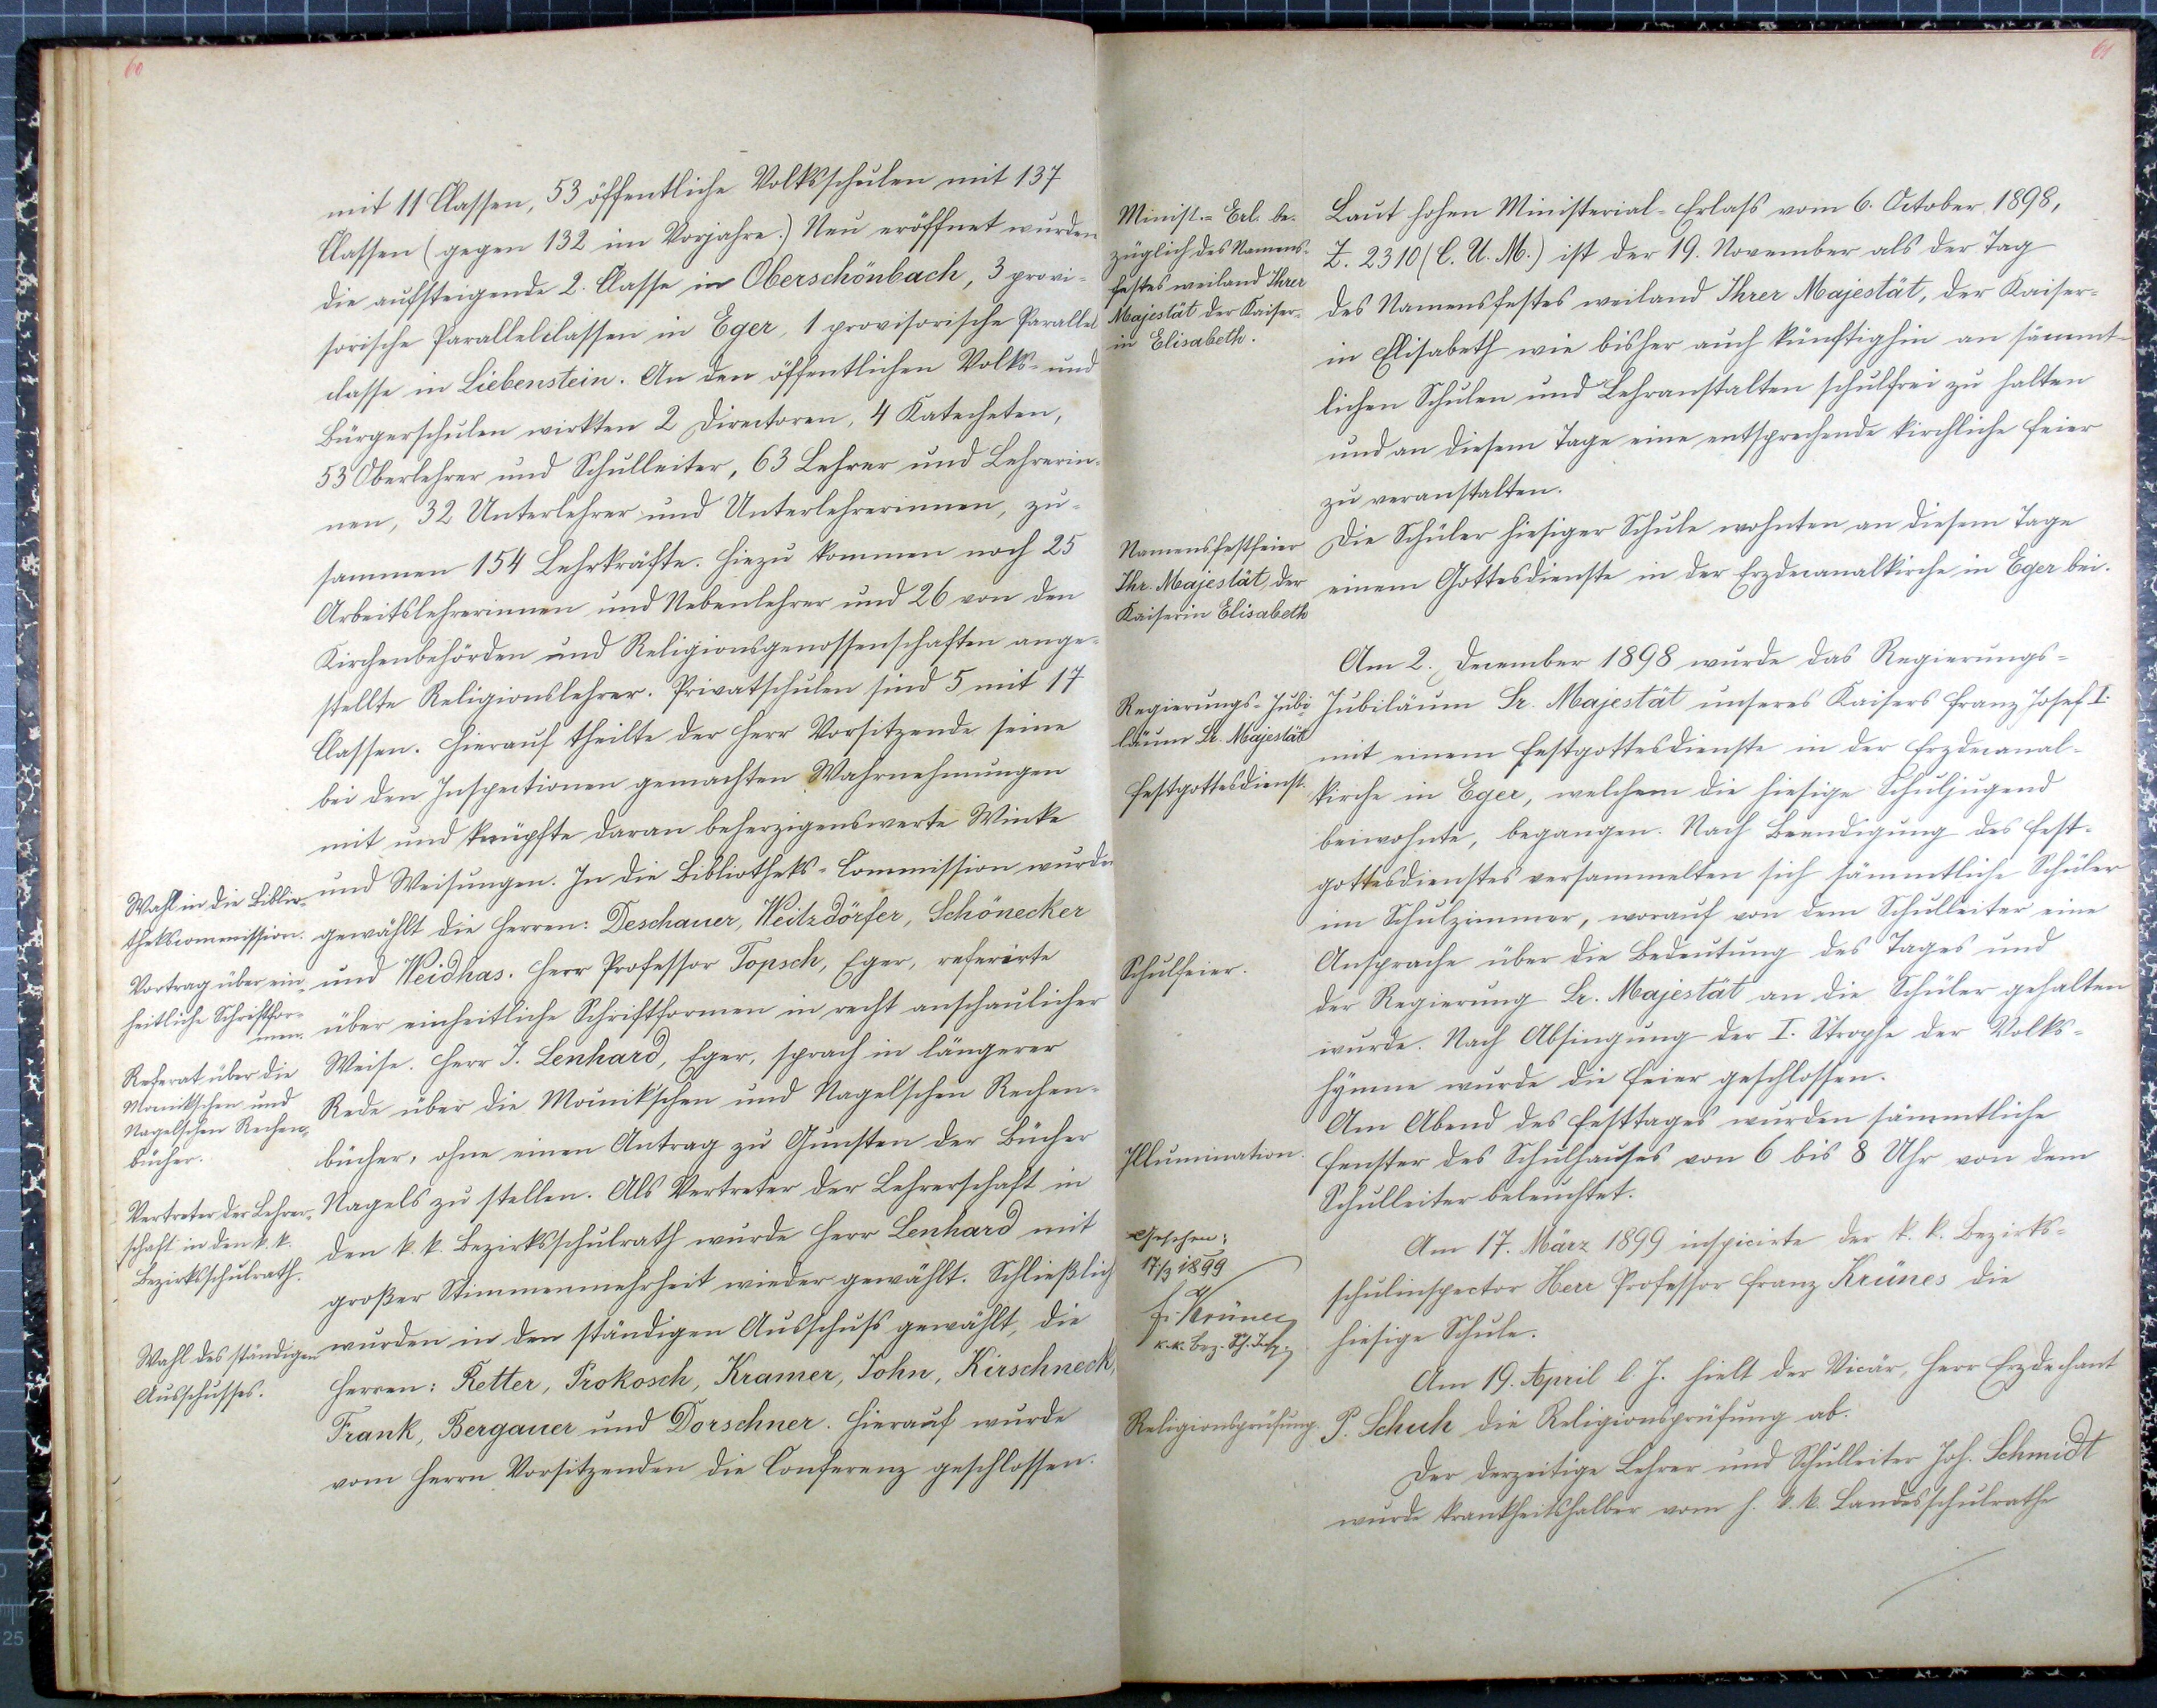 60
mit 11 Classen, 53 öffentliche Volksschulen mit 137
Classen (gegen 132 im Vorjahre.) Neu eröffnet wurden
die aufsteigende 2. Classe in Oberschönbach, 3 provi-
sorische Parallelclassen in Eger, 1 provisorische Parallel
classe in Liebenstein. An den öffentlichen Volks- und
Bürgerschulen wirkten 2 Directoren, 4 Katecheten,
53 Oberlehrer und Schulleiter, 63 Lehrer und Lehrerin-
nen, 32 Unterlehrer und Unterlehrerinnen, zu-
sammen 154 Lehrkräfte. Hiezu kommen noch 25
Arbeitslehrerinnen und Nebenlehrer und 26 von den
Kirchenbehörden und Religionsgenossenschaften ange-
stellte Religionslehrer. Privatschulen sind 5 mit 17
Classen. Hierauf theilte der Herr Vorsitzende seine
bei den Inspectionen gemachten Wahrnehmungen
mit und knüpfte daran beherzigenswerte Winke
und Weisungen. In die Bibliotheks-Commission wurden
gewählt die Herren: Deschauer, Weitzdörfer, Schönecker
und Weidhas. Herr Professor Topsch, Eger, referirte
über einheitliche Schriftformen in recht anschaulicher
Weise. Herr J. Lenhard, Eger, sprach in längerer
Rede über die Močnik'schen und Nagel'schen Rechen-
bücher, ohne einen Antrag zu Gunsten der Bücher
Nagels zu stellen. Als Vertreter der Lehrerschaft in
den k. k. Bezirksschulrath wurde Herr Lenhard mit
großer Stimmenmehrheit wieder gewählt. Schließlich
wurden in den ständigen Ausschuss gewählt, die
Herren: Retter, Prokosch, Kramer, John, Kirschneck,
Frank, Bergauer und Dorschner. Hierauf wurde
vom Herrn Vorsitzenden die Conferenz geschlossen.
Wahl in die Biblio-
thekscommission.
Vortrag über ein-
heitliche Schriftfor-
men.
Referat über die
Močnik'schen und
Nagelschen Rechen-
bücher.
Vertreter der Lehrer-
schaft in den k. k.
Bezirksschulrath.
Wahl des ständigen
Ausschusses.
61
Minist.- Erl. be-
züglich des Namens-
festes weiland Ihrer
Majestät der Kaiser-
in Elisabeth.
Namensfestfeier
Ihr. Majestät, der
Kaiserin Elisabeth
Regierungs-Jubi-
läum Sr. Majestät
Festgottesdienst.
Schulfeier.
Illumination.
Gesehen:
17./3 1899
Fr. Krünes
k. k. Bez. Sch. Insp.
Religionsprüfung.
Laut hohen Ministerial-Erlass vom 6. October 1898,
Z. 2310 (C. U. M.) ist der 19. November als der Tag
des Namensfestes weiland Ihrer Majestät, der Kaiser-
in Elisabeth wie bisher auch künftighin an sämmt-
lichen Schulen und Lehranstalten schulfrei zu halten
und an diesem Tage eine entsprechende kirchliche Feier
zu veranstalten.
Die Schüler hiesiger Schule wohnten an diesem Tage
einem Gottesdienste in der Erzdecanalkirche in Eger bei.
Am 2. December 1898 wurde das Regierungs-
Jubiläum Sr. Majestät unseres Kaisers Franz Josef I.
mit einem Festgottesdienste in der Erzdecanal-
kirche in Eger, welchem die hiesige Schuljugend
beiwohnte, begangen. Nach Beendigung des Fest-
gottesdienstes versammelten sich sämmtliche Schüler
im Schulzimmer, worauf von dem Schulleiter eine
Ansprache über die Bedeutung des Tages und
der Regierung Sr. Majestät an die Schüler gehalten
wurde. Nach Absingung der I. Strophe der Volks-
hymne wurde die Feier geschlossen.
Am Abend des Festtages wurden sämmtliche
Fenster des Schulhauses von 6 bis 8 Uhr von dem
Schulleiter beleuchtet.
Am 17. März 1899 inspicirte der k. k. Bezirks-
schulinspector Herr Professor Franz Krünes die
hiesige Schule.
Am 19. April l. J. hielt der Vicär, Herr Erzdechant
P. Schuh die Religionsprüfung ab.
Der derzeitige Lehrer und Schulleiter Joh. Schmidt
wurde krankheitshalber vom h. k. k. Landesschulrathe